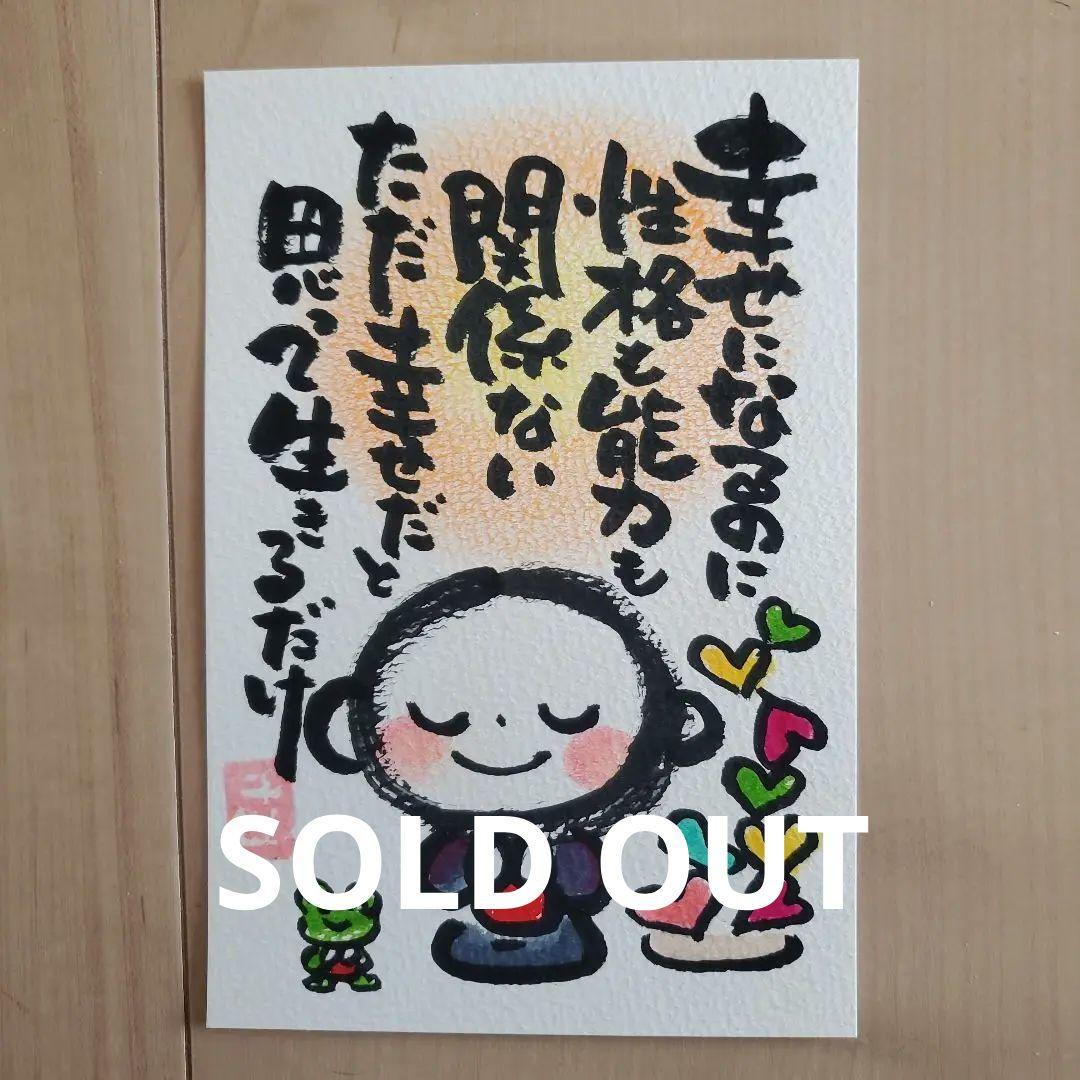 幸せになるのに
性格も能力も
関係ない
ただ幸せだと
思って生きるだけ
SOLD OUT